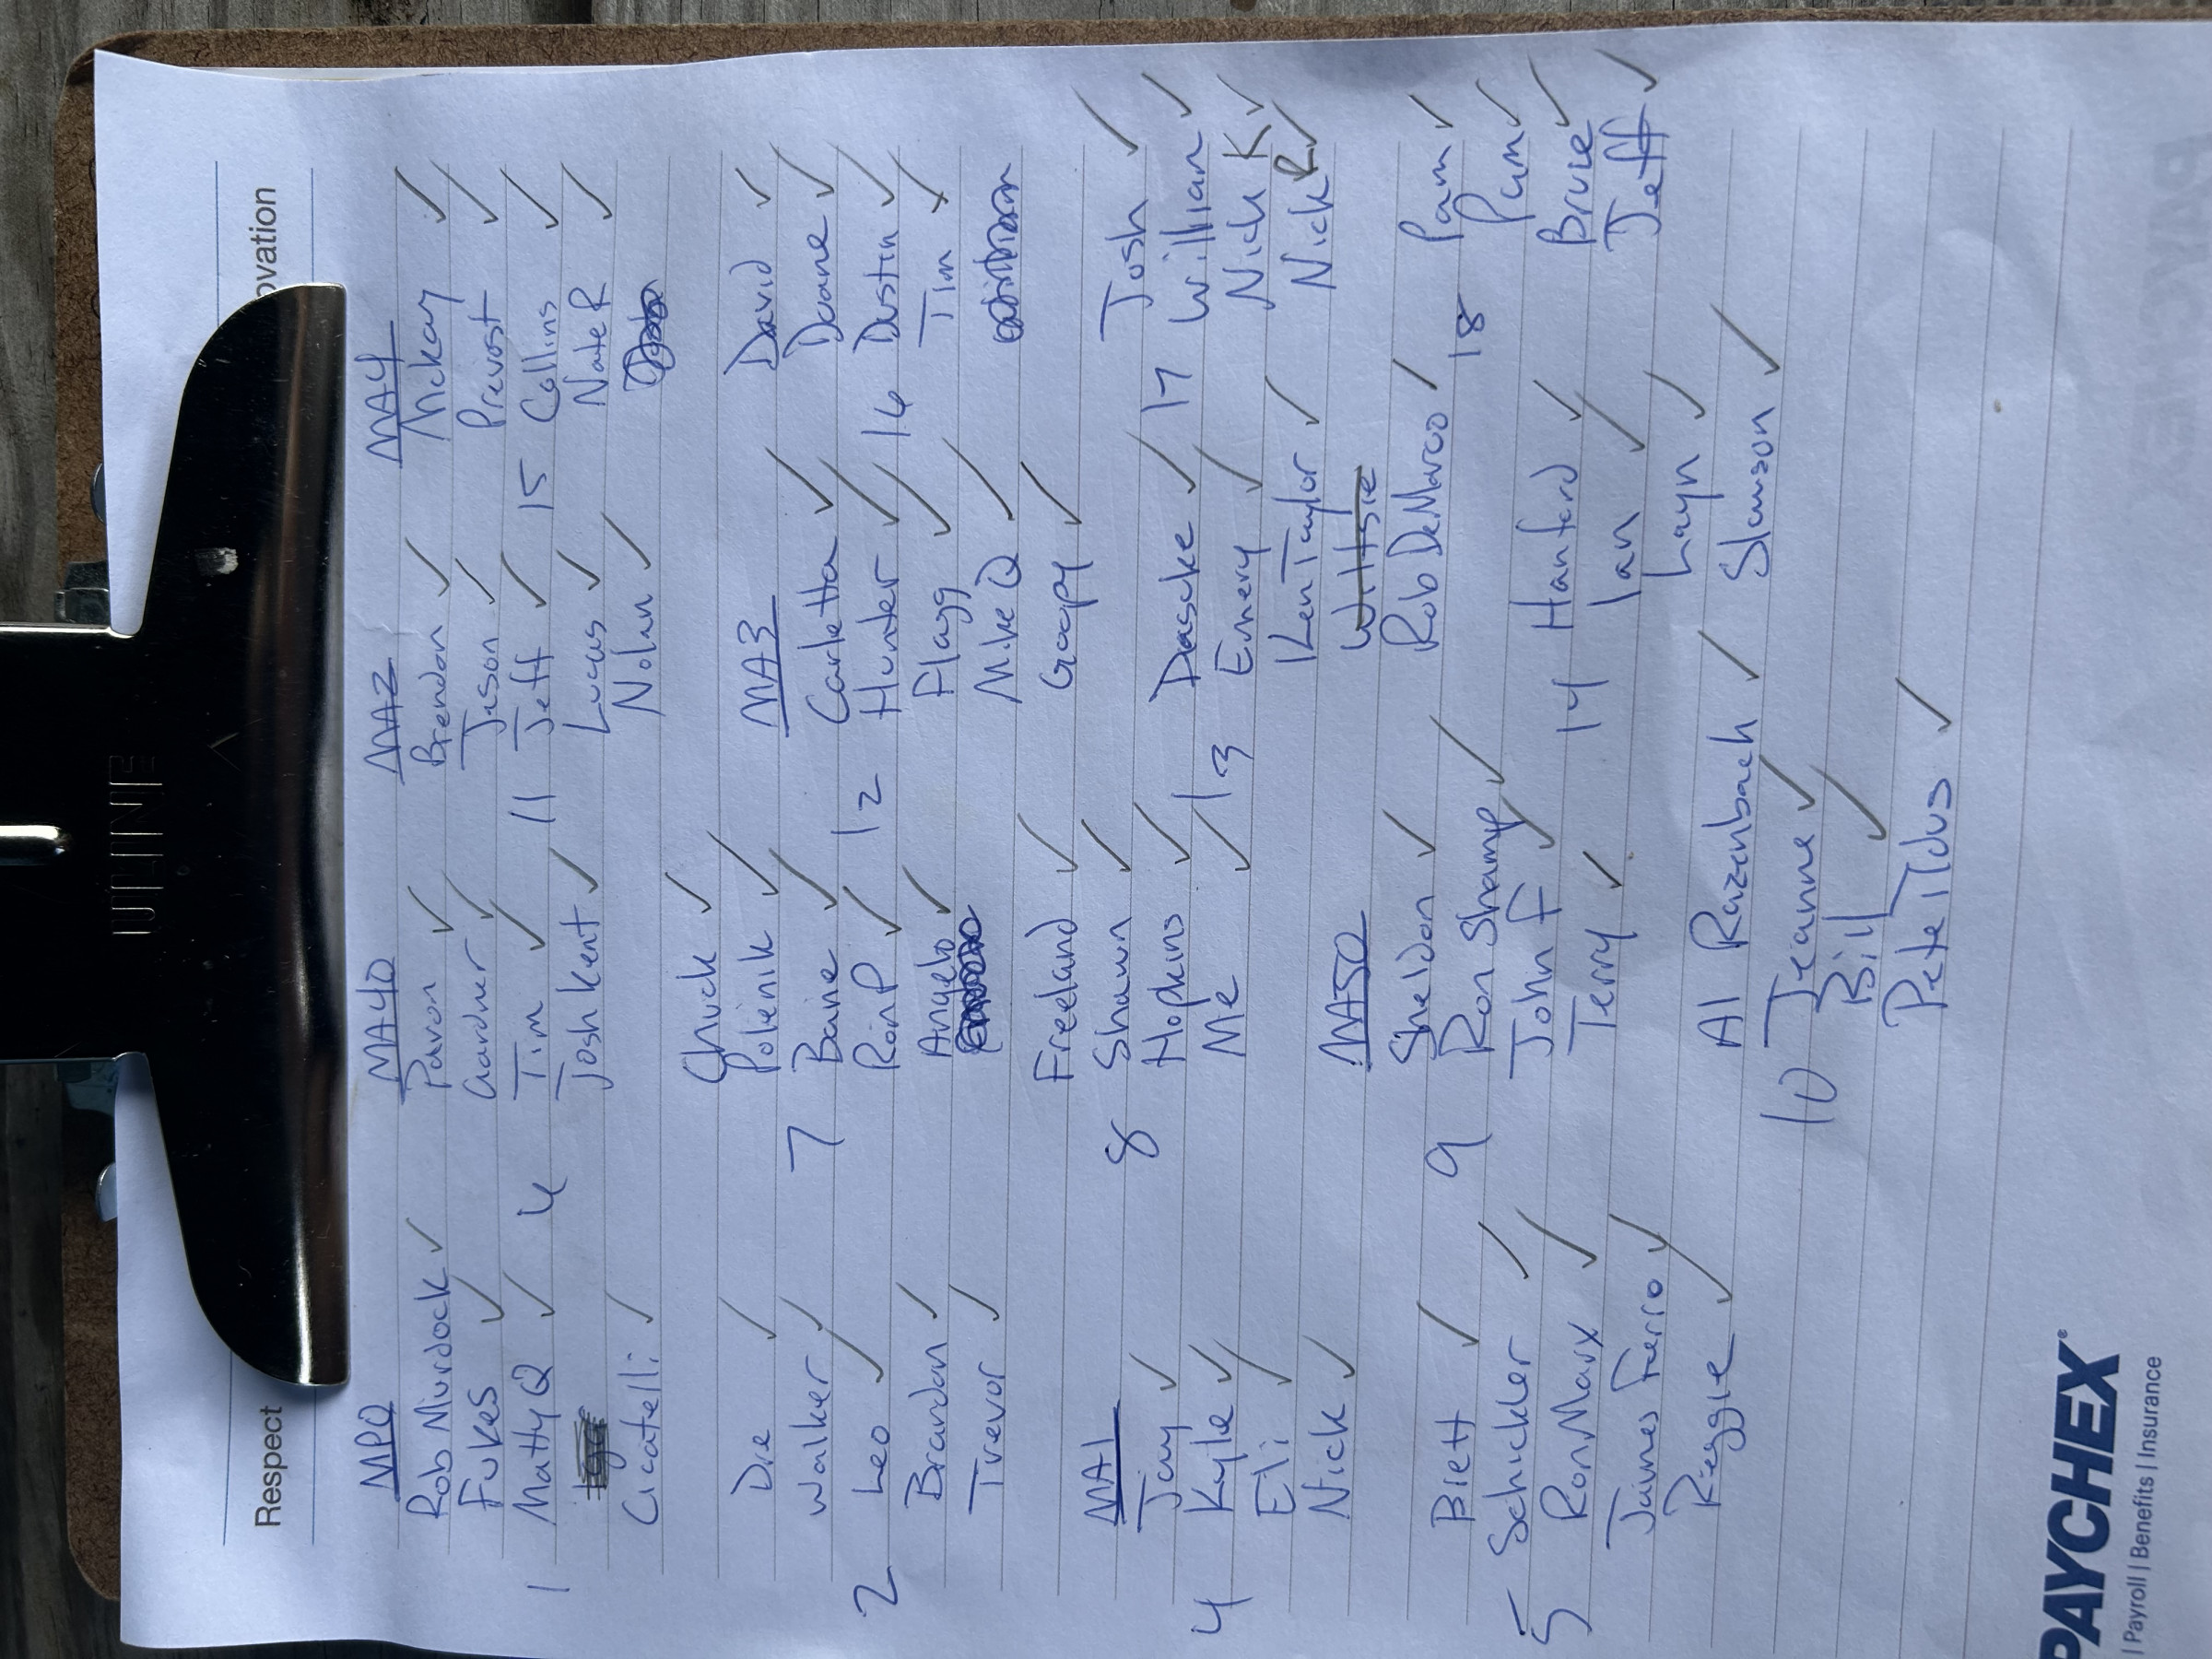 Respect
ovation
ULINE
MPO
Rob Murdock ✓
Fukes ✓
1 Matty Q ✓
Cicatelli ✓
Dre ✓
Walker ✓
2 Leo ✓
Brandon ✓
Trevor ✓
MA1
Jay ✓
4 Kyle ✓
Eli ✓
Nick ✓
Brett ✓
5 Schickler ✓
Ron Marx ✓
James Fierro ✓
Reggie ✓
MA40
Pavon ✓
Gardner ✓
Tim ✓
Josh Kent ✓
Chuck ✓
Poleinik ✓
7 Baine ✓
Ron P ✓
Angelo ✓
Freeland ✓
8 Shawn ✓
Hopkins ✓
Me ✓
MA50
Sheldon ✓
9 Ron Shamp ✓
John F ✓
Terry ✓
Al Razenbach ✓
10 Jeanne ✓
Bill ✓
Pete Titus ✓
MA2
Brendan ✓
Jason ✓
11 Jeff ✓
Lucas ✓
Nolan ✓
MA3
Carletta ✓
12 Hunter ✓
Flagg ✓
Mike Q ✓
Goopy ✓
Dascke ✓
13 Emery ✓
Ken Taylor ✓
Wiltsie
Rob DeMarco ✓
Hanford ✓
14 Ian ✓
Layn ✓
Slamson ✓
MA4
Mckay ✓
Prevost ✓
15 Collins ✓
Nate R ✓
David ✓
Duane ✓
16 Dustin ✓
Tim ✓
Josh ✓
17 William ✓
Nick K ✓
Nick R ✓
Pam ✓
18 Pam ✓
Bruce ✓
Jeff ✓
PAYCHEX®
| Payroll | Benefits | Insurance